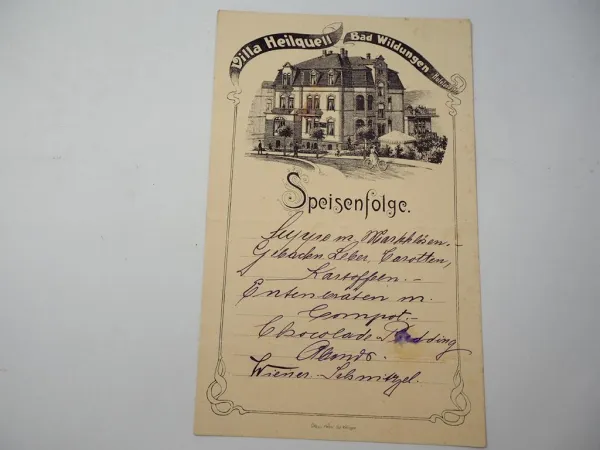 Villa Heilquell Bad Wildungen
Speisenfolge.
Suppe m. Markklösen.-
Gebacken Leber, Carotten,
Kartoffeln.-
Entenbraten m.
Compot.-
Chocolade-Pudding
Abends.
Wiener-Schnitzel.